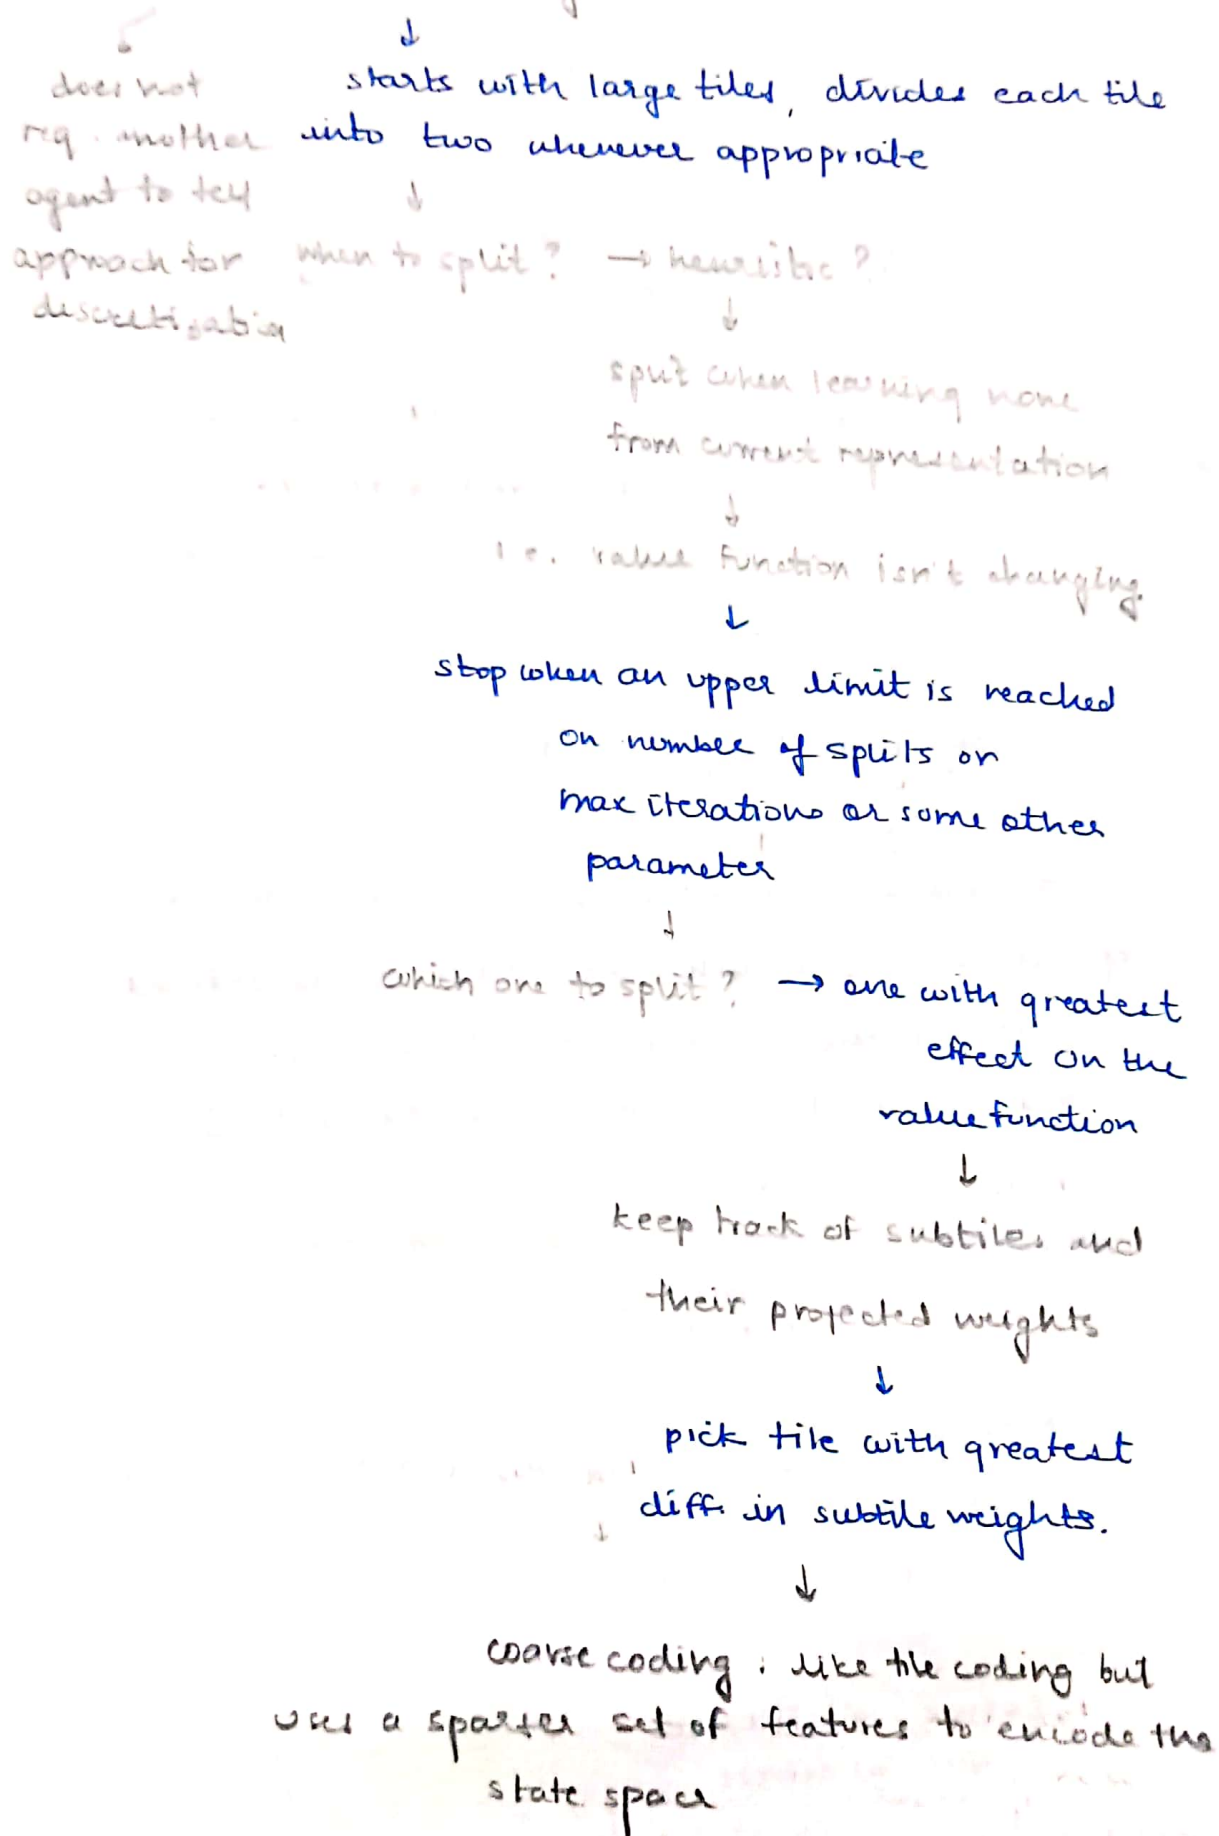 does not
req. another
agent to tell
approach for
discretization
↓
starts with large tiles, divides each tile
into two whenever appropriate
↓
when to split? → heuristic?
↓
split when learning none
from current representation
↓
i.e. value function isn't changing
↓
stop when an upper limit is reached
on number of splits or
max iterations or some other
parameter
↓
which one to split? → one with greatest
effect on the
value function
↓
keep track of subtiles and
their projected weights
↓
pick tile with greatest
diff. in subtile weights.
↓
coarse coding : like tile coding but
uses a sparser set of features to encode the
state space